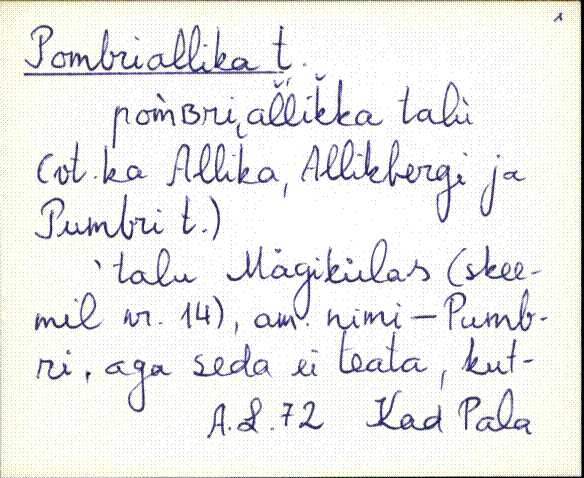 1
Pombriallika t.
pom̀ʙri͜ˌal̆l̆ik̆ka talù
(vt. ka Allika, Allikbergi ja
Pumbri t.)
`talu Mägikülas (skee-
mil nr. 14), am. nimi — Pumb-
ri, aga seda ei teata, kut-
A.L. 72 Kad Pala